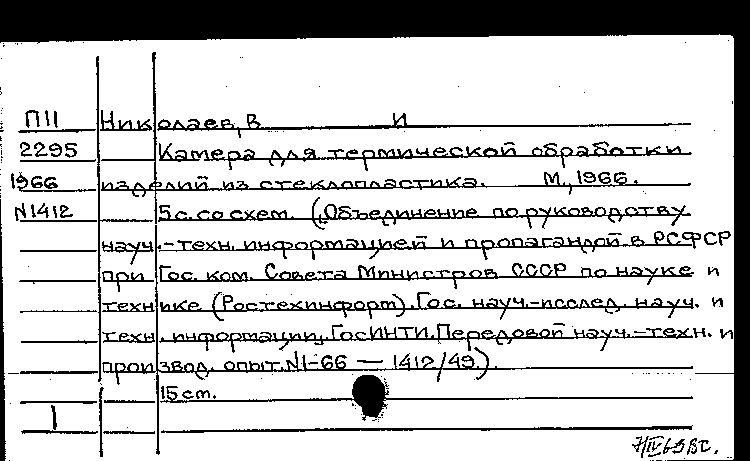 П11 Николаев, В И
2295 Камера для термической обработки
1966 изделий из стеклопластика. М., 1966.
N1412 5 с. со схем. („Объединение по руководству
науч.-техн. информацией и пропагандой в РСФСР
при Гос. ком. Совета Министров СССР по науке и
технике (Ростехинформ). Гос. науч.-исслед. науч. и
техн. информации. ГосИНТИ. Передовой науч.-техн. и
производ. опыт. N1-66 — 1412/49).
15 cm.
1